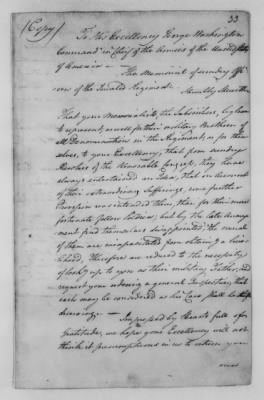 33
(Copy)
To His Excellency George Washington
Command in Chief of the Armies of the United States
of America —
The Memorial of sundry Offi
cers of the Invalid Regiment
Humbly Sheweth
That your Memorialists, the Subscribers, beg leave
to represent, as well for their military Brethren of
all Denominations in the Regiment, as for them
selves, to your Excellency, that from sundry
Resolves of the Honorable Congress, they have
always entertained an Idea, that on Account
of their extraordinary Sufferings, some further
Provision was intended them, than for their more
fortunate fellow Soldiers, but by the late Arrange
ment find themselves disappointed; tho several
of them are incapacitated from obtaining a Live
lihood, Therefore are reduced to the necessity
of looking up to you as their military Father, and
request your ordering a general Inspection, that
each may be considered as his Case shall be
deserving —
Impressed by Hearts full of
Gratitude, we hope your Excellency will not
think it presumptuous in us to return you